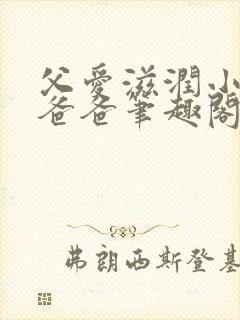 父爱滋润小
爸爸笔趣阁
弗朗西斯登基